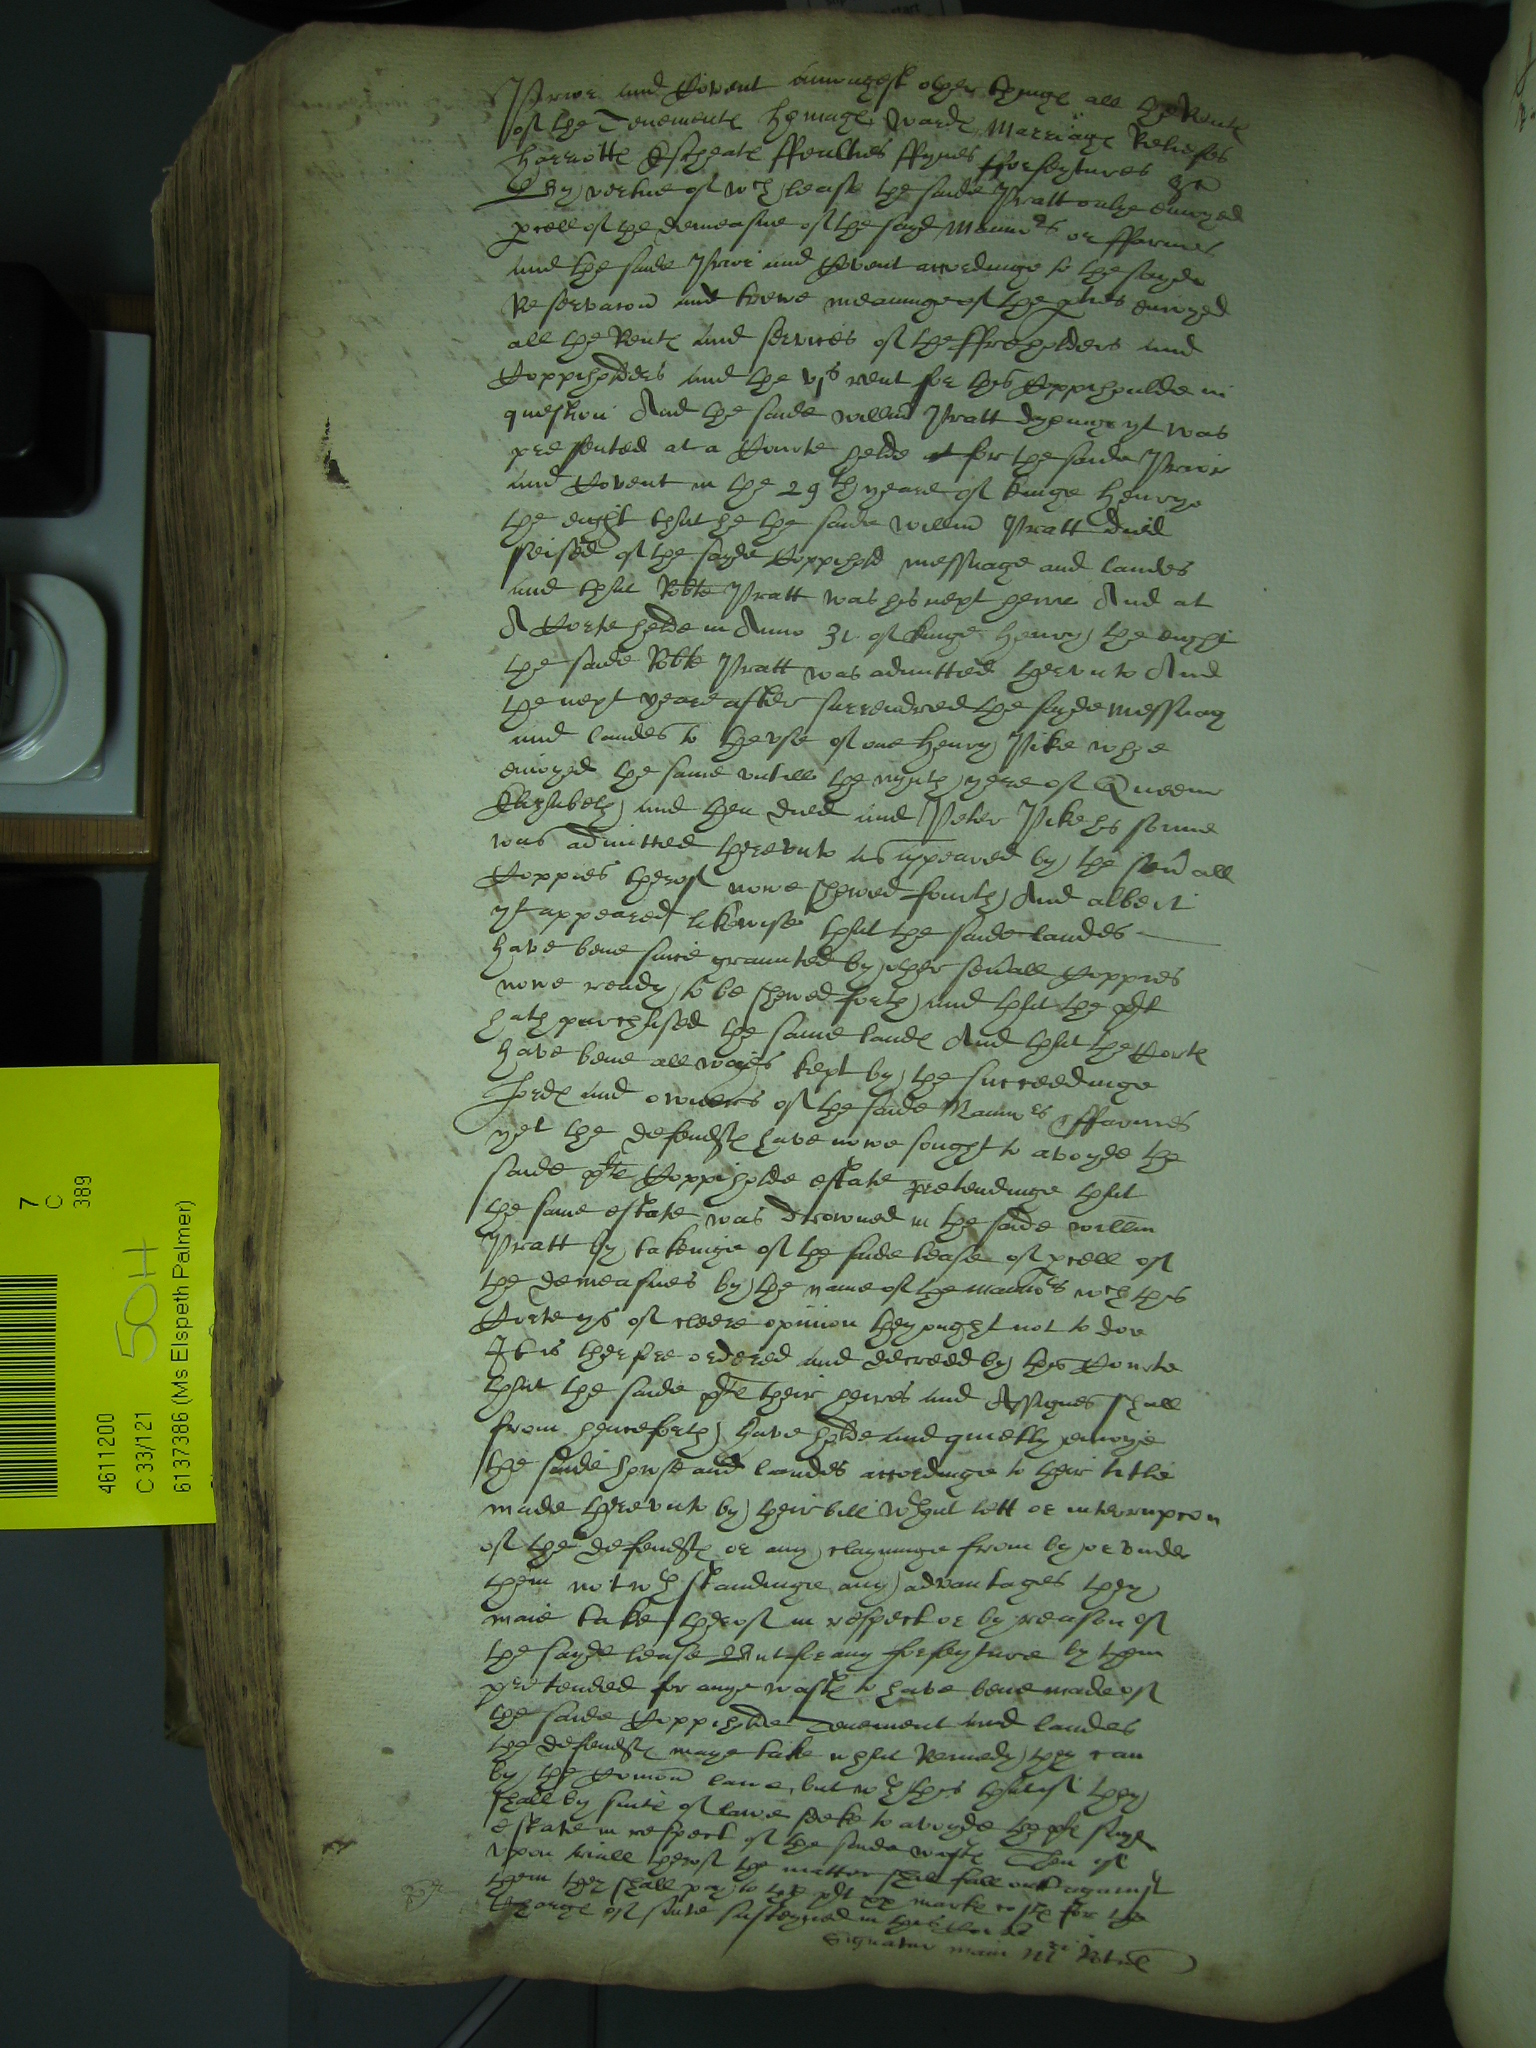 Prior and Covent amongest other thinges all the Rents
of the Tenements homages wards Marriags Reliefes
harriotts Escheats ffealties ffynes fforfeytures &c
By vertue of wch lease the saide Pratt onlye enioyed
pcell of the demeasne of the sayde Mannors or ffarmes
and the saide Prior and Covent accordinge to the sayde
Reservacon and trewe meaninge of the pties enioyed
all the Rents and services of the ffreeholders and
Coppiholders and the vjs rent for this Coppihoulde in
question And the saide willm Pratt dyeinge yt was
presented at a Courte helde for the saide Prior
and Covent in the 29th yeare of kinge Henrye
the eight that he the saide willm Pratt died
seised of the sayde Coppihold messuage and landes
and that Robte Pratt was his next heire And at
A Corte helde in Anno 31 of kinge Henry the eight
the saide Robte Pratt was admitted therevnto And
the next yeare after surrendred the sayde messuag
and landes to the vse of one Henry Pike whoe
enioyed the same vntill the nynth yere of Queene
Elizabeth and then died and Peter Pike his sonne
was admitted therevnto as appeared by the seuall
Coppies therof nowe shewed fourth And albeit
yt appeared likewise that the saide landes
have bene since graunted by other seuall Coppies
nowe ready to be shewed forth and that the plt
hath purchased the same lands And that the Corts
have bene all wayes kept by the succeedinge
Lords and owners of the saide Mannors & ffarmes
yet the defendts have nowe sought to avoyde the
saide plts Coppiholde estate pretendinge that
the same estate was drowned in the saide willm
Pratt by takeinge of the saide lease of pcell of
the demeasnes by the name of the mannors wch this
Corte ys of cleere opinion they ought not to doe
It is therfore ordered and decreed by this Courte
that the saide plts their heires and Assignes shall
from henceforth have holde and quietly enioye
the saide howse and landes accordinge to their title
made therevnto by their bill wthout lett or interrupcon
of the defendts or any clayminge from by or vnder
them notwthstandinge any advantages they
maie take therof in respect or by reason of
the sayde lease But for any forfeyture by them
pretended for anye wasts to have bene made of
the saide Coppiholde Tenement and landes
the defendts maye take what Remedy they can
by the Comon lawe, but wth this that if they
shall by suite of lawe seeke to avoyde the plts sayde
estate in respect of the saide wasts Then if
vpon triall therof the matter shall fall out against
them they shall pay to the plt xx marks costs for the
Charge of suite susteyned in this Corte
Signatur manu
7
C
389
4611200
50H
C 33/121
6137386 (Ms Elspeth Palmer)